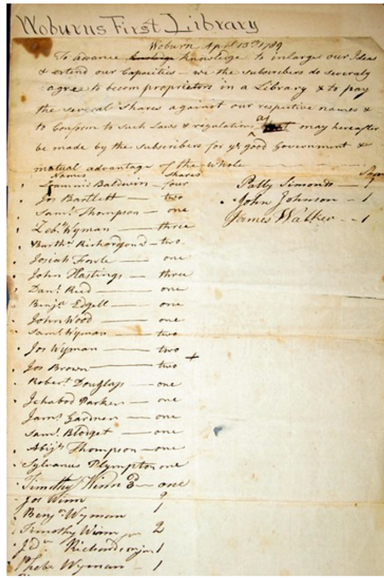 Woburns First Library
Woburn April 13th 1789
To advance Knowledge to enlarge our Ideas
& extend our Capacities — we the subscribers do severaly
agree to becom proprietors in a Library & to pay
the several Shares against our respective names &
to Conform to such Laws & regulations as may hereafter
be made by the subscribers for ye good Government &
mutual advantage of the whole
Names Shares
Loammi Baldwin — four
Jos Bartlett — two
Saml Thompson — one
Zebn Wyman — three
Barthw Richardson — two
Josiah Fowle — one
John Hastings — three
Danl Reed — one
Benja Edgell — one
John Wood — one
Saml Wyman — two
Jos Wyman — two
Jos Brown — two
Robert Douglass — one
Ichabod Parker — one
Jams Gardner — one
Saml Blodget — one
Abijh Thompson — one
Sylvanus Plympton one
Timothy Winn — one
Jos Winn 2
Benja Wyman 1
Timothy Winn 2
Richardson junr 1
Phebe Wyman 1
Patty Simonds — 1
John Johnson — 1
James Walker — 1